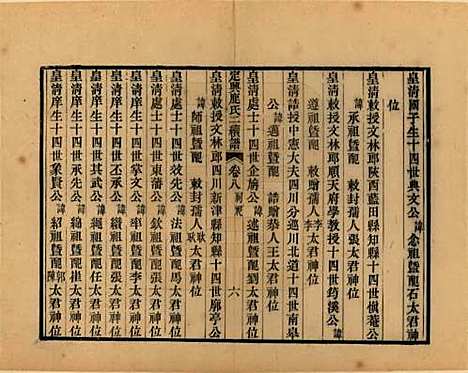 皇清國子生十四世典文公諱念祖暨龍石太君神
位
皇清敕授文林郎陝西藍田縣知縣十四世楨菴公
諱承祖暨龍 敕封孺人張太君神位
皇清敕授文林郎順天府學教授十四世筠溪公諱
遵祖暨龍 敕贈孺人李太君神位
皇清誥授中憲大夫四川分巡川北道十四世南皋
公諱邁祖暨龍 誥贈恭人王太君神位
皇清處士十四世企旃公諱述祖暨龍劉太君神位
定興鹿氏二續譜 卷八 六
皇清敕授文林郎四川新津縣知縣十四世廓亭公
諱師祖暨龍 敕封孺人耿太君神位
皇清處士十四世效先公諱法祖暨龍張太君神位
皇清處士十四世東藩公諱欽祖暨龍張太君神位
皇清庠生十四世掌文公諱率祖暨龍李太君神位
皇清庠生十四世丕承公諱纘祖暨龍張太君神位
皇清庠生十四世其武公諱繩祖暨龍崔太君神位
皇清庠生十四世承先公諱光祖暨龍任太君神位
皇清庠生十四世象賢公諱紹祖暨龍郭陳太君神位